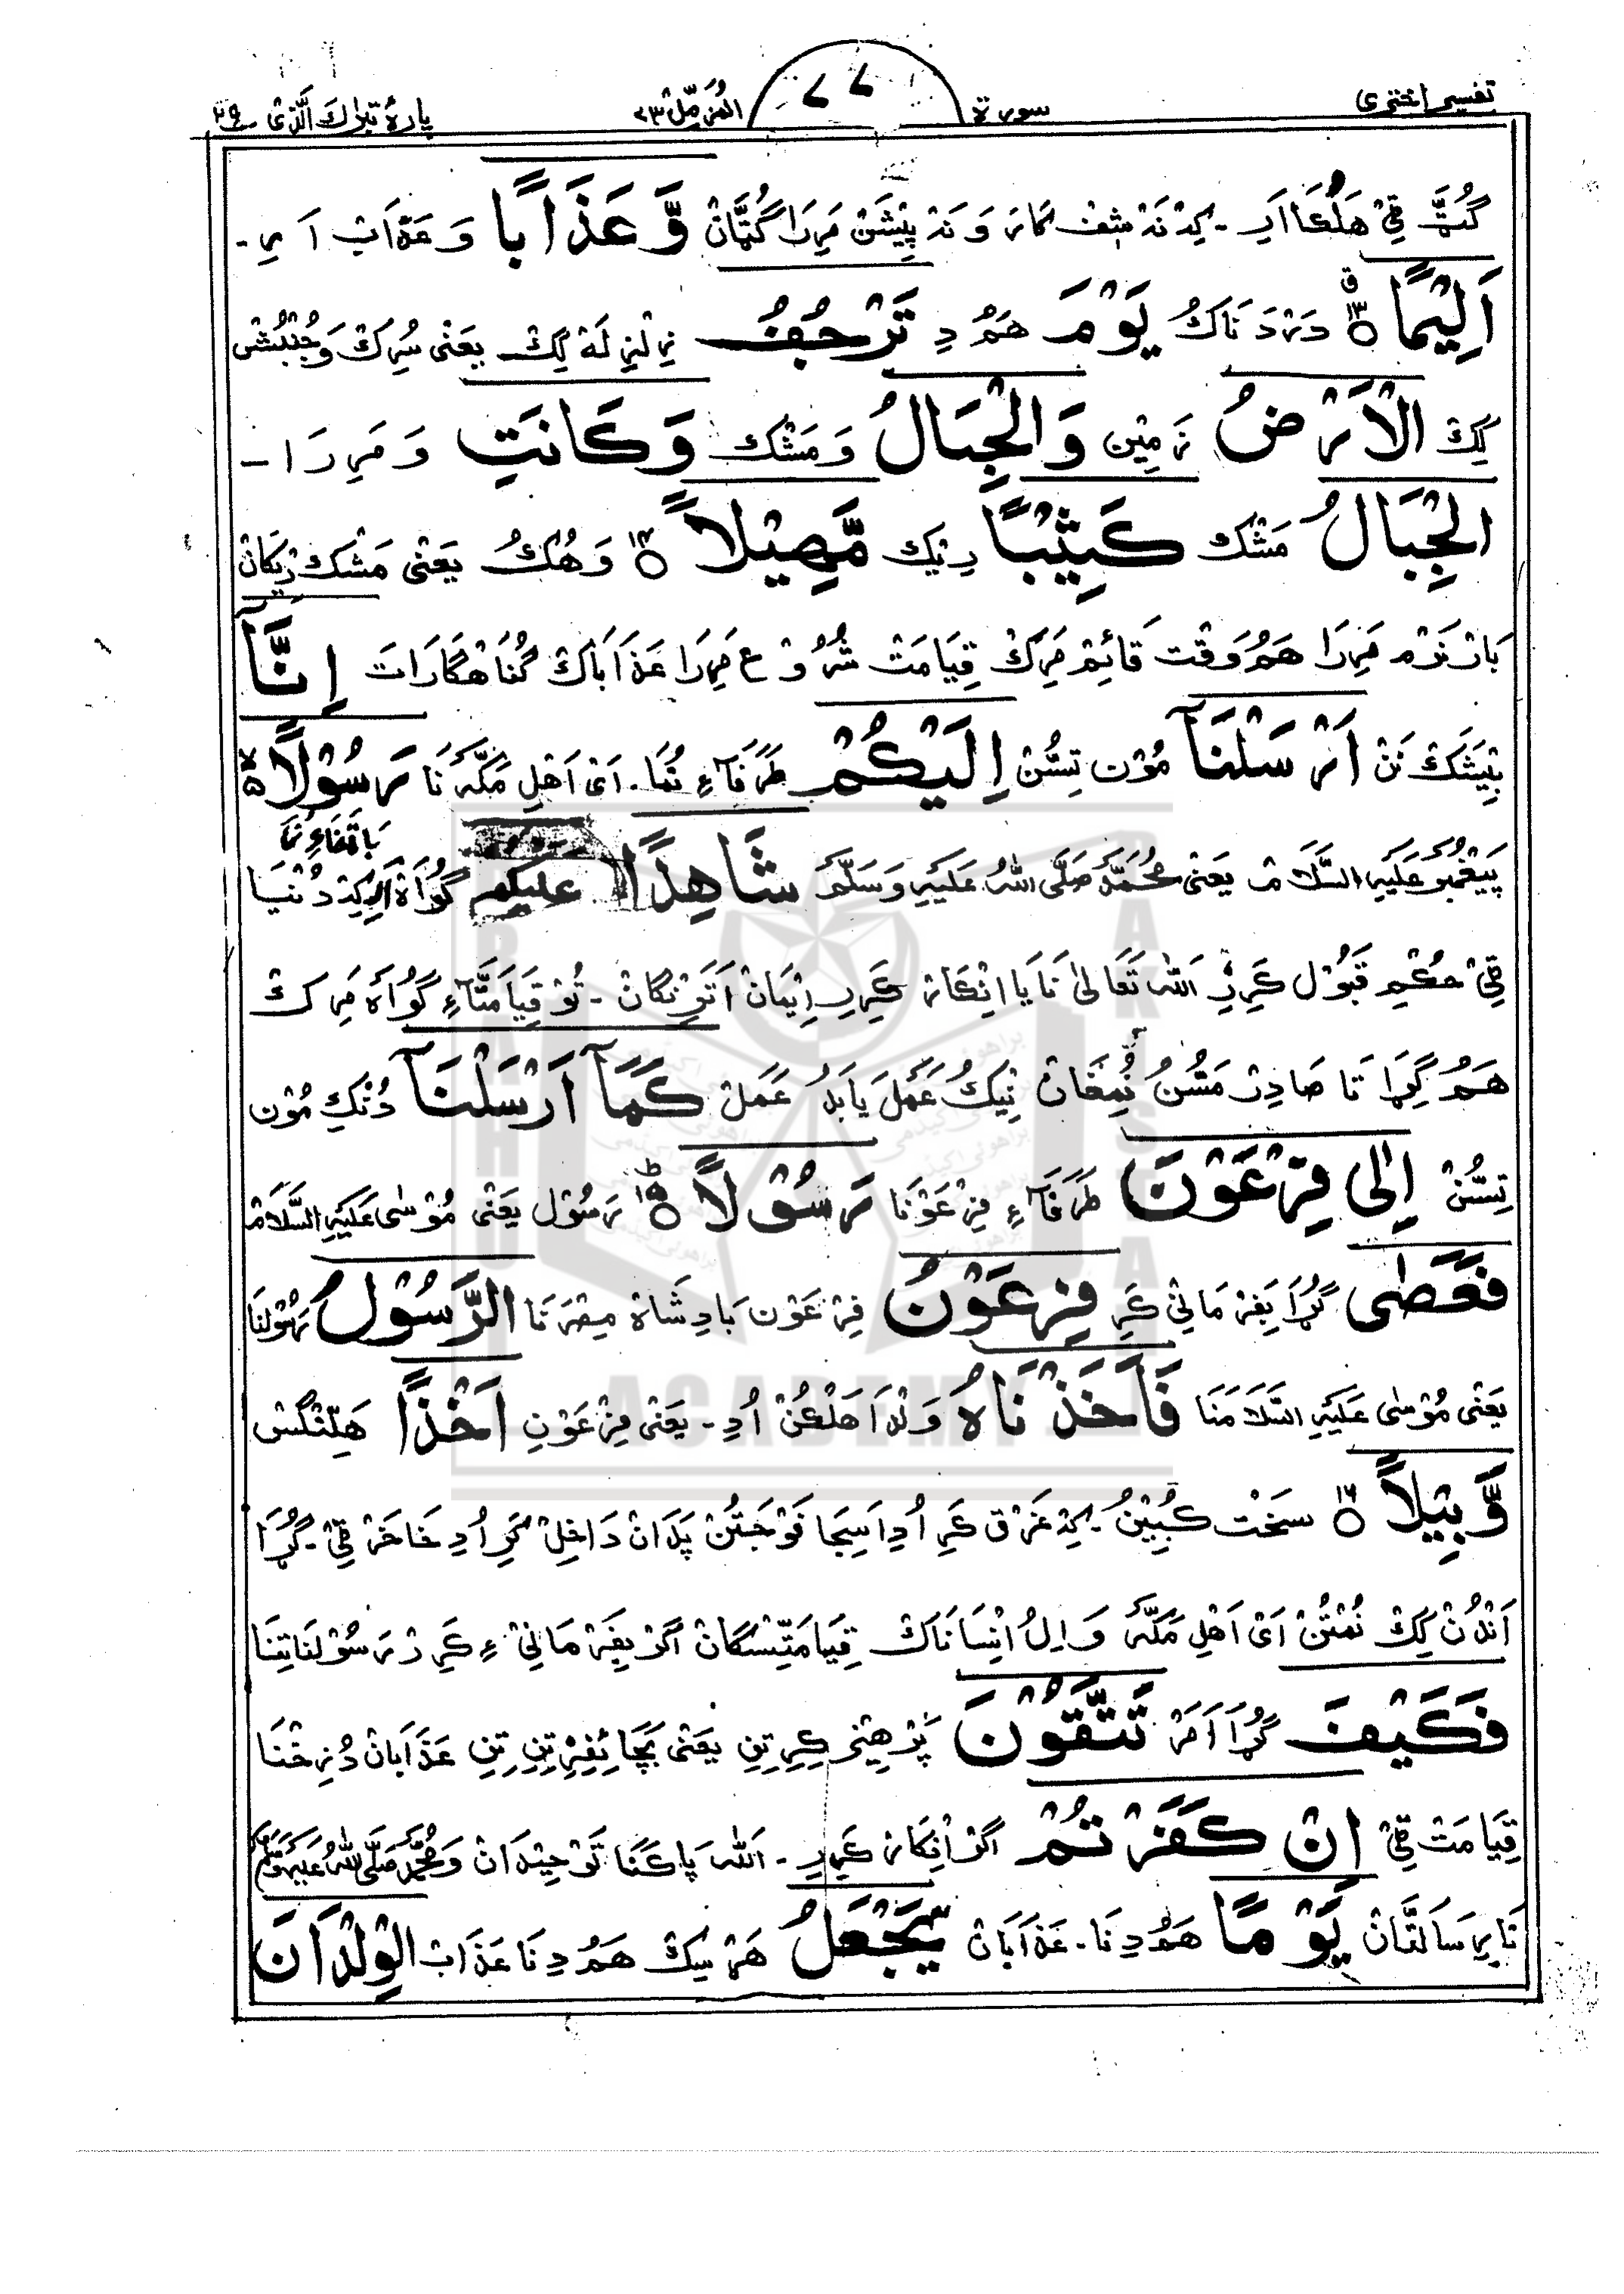 تفسیر اختری سورة ٧٧ المزمل ٧٣ پارهٔ تبارك الذی ٢٩
گُٹّ ٹی هَلُکا اَرِ ۔ کِہ نَہ شِف کائَر وَ نَہ پِیْشَنْ مَرِرَا گُٹَّانْ وَّعَذَابًا وَ عَذَاب اَرِ ۔
اَلِیْمًا ۝۱۳ دَرْدَ نَاكُ یَوْمَ هَمُ دِ تَرْجُفُ زِلْزِلَہ لِکْ یَعْنٰی سُرِكْ وَجُنْبُشْ
لِکْ الْاَرْضُ زَمِیْن وَالْجِبَالُ وَ مَشْك وَکَانَتِ وَ مَرِرَا ـ
الْجِبَالُ مَشْك کَثِیْبًا رِیْك مَّهِیْلًا ۝۱۴ وَهُكُ یَعْنٰی مَشْك رِیْکَانْ
بَارْ نَرْم مَرِرَا هَمُ وَقْت قَائِمْ مَرِكْ قِیَامَتْ شُرُوْع مَرِرَا عَذَابَاكْ گُنَاهْگَارَاتَ اِنَّآ
بِیْشَكْ نَنْ اَرْسَلْنَآ مُوْن تِسُّنْ اِلَیْکُمْ طَرَفَآءِ نُمَا ۔ اَیْ اَهْلِ مَکَّہ نَا رَسُوْلًا
پَیْغَمْبَر عَلَیْہِ السَّلَامْ یَعْنٰی مُحَمَّدْ صَلَّی اللّٰہُ عَلَیْہِ وَسَلَّمَ شَاهِدًا عَلَیْکُمْ گُوَاهْ اَرِ کِہ دُنْیَا
ٹی حُکْمِ قَبُوْل کَرِرْ اَللّٰہ تَعَالٰی نَا یَا اِنْکَار کَرِرِ اِیْمَانْ اَتَنِنْگَانْ ۔ تُوْ قِیَامَتَآءِ گُوَاہ مَرِ كْ
هَمُ گِڑَا تَا صَادِرْ مَسُّنُ نُمْخَانْ نِیْكُ عَمَلَ یَا بَدُ عَمَلْ کَمَآ اَرْسَلْنَآ دُنْکِ مُوْن
تِسُّنْ اِلٰی فِرْعَوْنَ طَرَفَآءِ فِرْعَوْنَا رَسُوْلًا ۝۱۵ رَسُوْل یَعْنٰی مُوْسٰی عَلَیْہِ السَّلَامْ
فَعَصٰی گُڑَا بِفَرْمَانِیْ کَرِ فِرْعَوْنُ فِرْعَوْن بَادِشَاهْ مِصْرَنَا الرَّسُوْلَ رَسُوْلنَا
یَعْنٰی مُوْسٰی عَلَیْہِ السَّلَامَنَا فَاَخَذْنَاهُ وَلْدَا هَلْکُنْ اُدِ ۔ یَعْنٰی فِرْعَوْنِ اَخْذًا هَلِّنْگَسْ
وَّبِیْلًا ۝۱۶ سَخْت کُبِیْنُ ۔ کِہ غَرْق کَرِ اُدِ اَسِیجَا فَوْجَتُنْ پَدَانْ دَاخِلْ کَرِ اُدِ خَاخَرْ ٹی ۔ گُڑَا
اَنْدُنْ لِکْ نُمْتُنْ اَیْ اَهْلِ مَکَّہ وَ اِلُ اِنْسَانَاكْ قِیَامَتِسْکَانْ اَگَرْ بِفَرْمَانِیْ ءِ کَرِرْ رَسُوْلنَا تِنَا
فَکَیْفَ گُڑَا اَمَرْ تَتَّقُوْنَ پَرْهِیْز کِرِ تِنِ یَعْنٰی بَچَائِفِرْ تِنِ تِنِ عَذَابَانْ دُزِخْنَا
قِیَامَتْ ٹی اِنْ کَفَرْتُمْ اَگَرْ اِنْکَار کَرِرِ ۔ اَللّٰہ پَاکَنَا تَوْحِیْدَانْ وَ مُحَمَّدْ صَلَّی اللّٰہُ عَلَیْہِ وَسَلَّمَ
نَا رِسَالَتَانْ یَوْمًا هَمُ دِ نَا ۔ عَذَابَانْ یَّجْعَلُ هَمْ سِكْ هَمُ دِ نَا عَذَابْ الْوِلْدَانَ